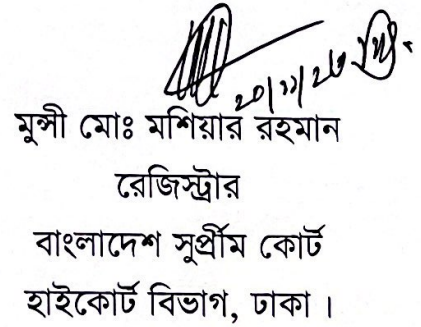 ২০/১১/২৩ ইং
মুন্সী মোঃ মশিয়ার রহমান
রেজিস্ট্রার
বাংলাদেশ সুপ্রীম কোর্ট
হাইকোর্ট বিভাগ, ঢাকা ।